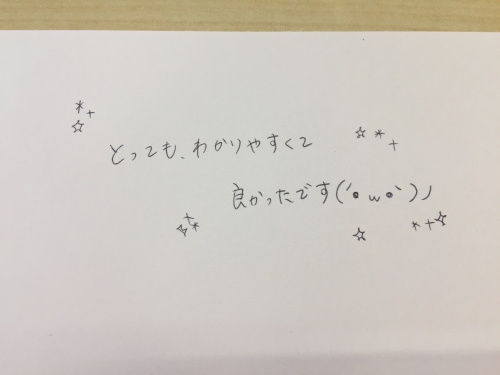 とっても、わかりやすくて
良かったです(´°ω°`)ノ